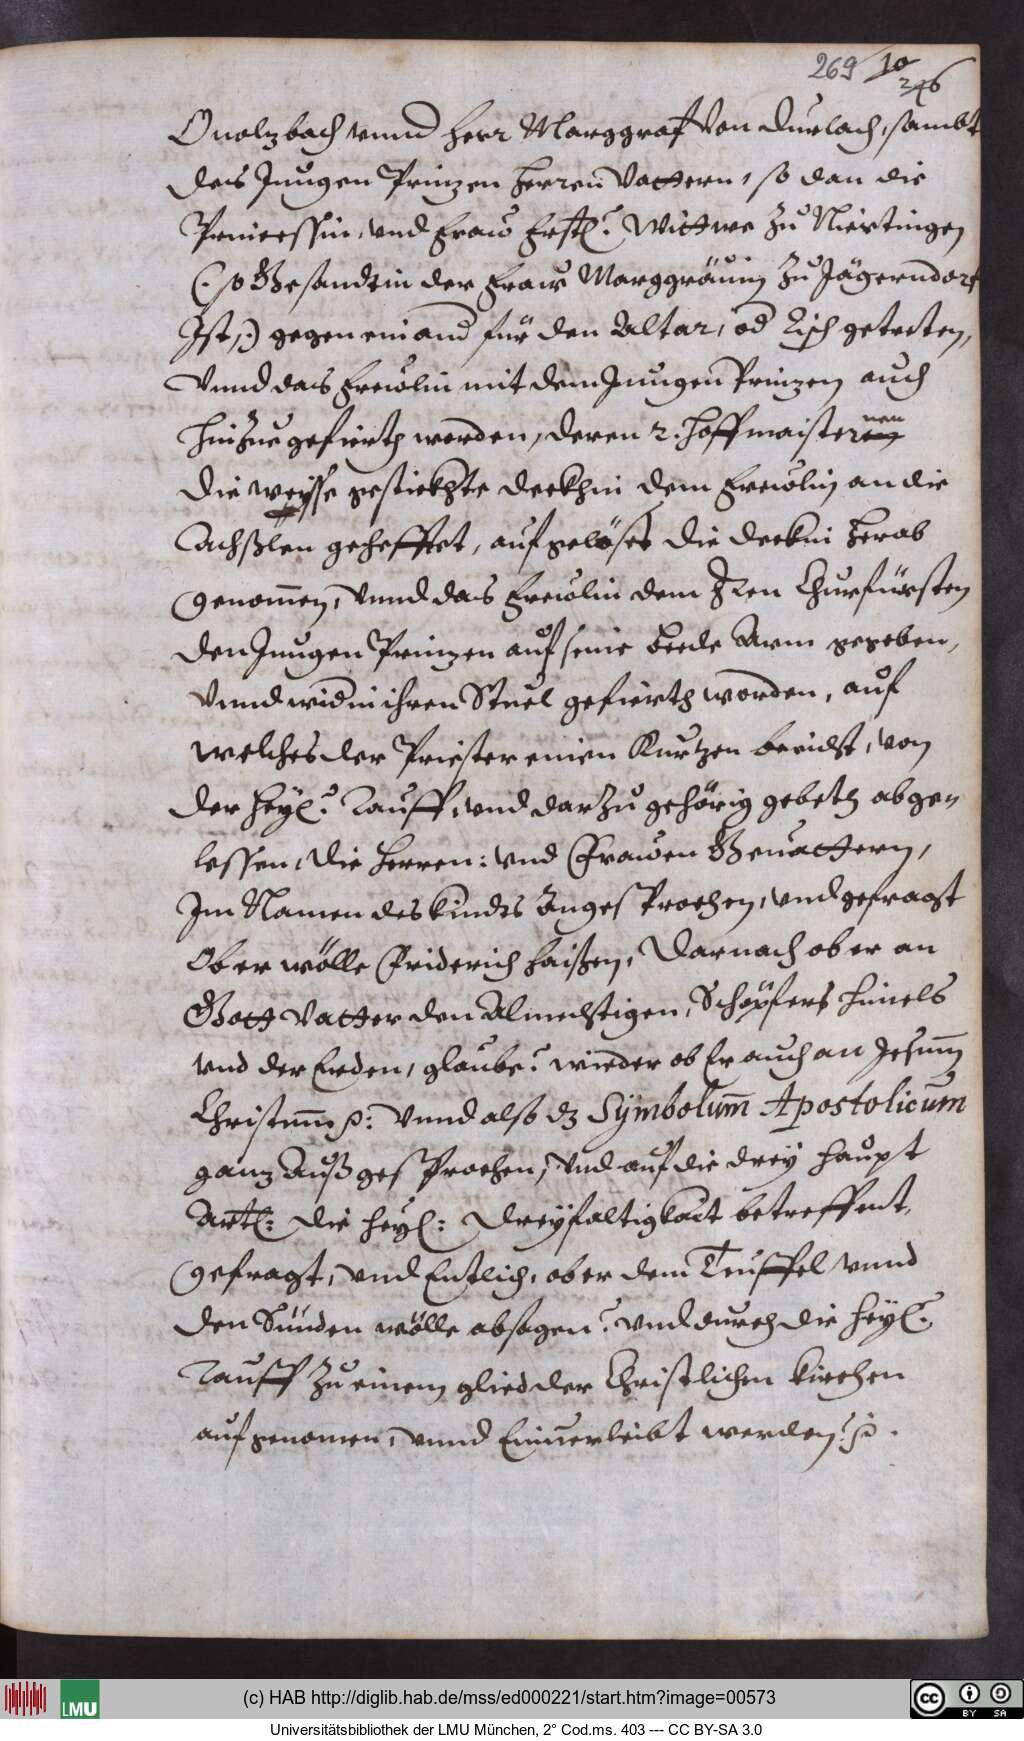 269 10
246
Onolzbach vnnd Herr Marggraf Von Durlach, sambt
des Jungen Prinzen Herren Vattern, so dan die
Princessin, vnd Fraw Frstl: Wittwe zu Niertingen
(: so Gesandtin der Fraw Marggräuin zu Jägerndorf
Ist,:) gegen einand für den Altar, od Tisch getretten,
Vnnd das Frewlin mit dem Jungen Prinzen auch
hinzue gefierth worden, deren 2. Hoffmaisterinen
die weysse gestickhte deckhin dem Frewlin an die
Achßlen gehefftet, aufgelöset die deckin herab
genommen, Vnnd das Frewlin dem Hren Churfürsten
den Jungen Prinzen auf seine beede Arm gegeben,
Vnnd wid in ihren Stuel gefierth worden, auf
welches der Priester einen Kurtzen bericht, von
der Heyl: Tauff, vnd darzu gehörig gebeth abge
lessen, die Herren: vnd Frawen Geuattern,
Im Namen des Kindts Angesprochen, vnd gefragt
Ob er wölle Friderich haissen, Darnach ob er an
Gott Vatter den Almechtigen, Schöpfers himels
vnd der Erden, glaube? wieder ob Er auch an Jesum
Christum p: Vnnd also dz Sÿmbolum Apostolicum
ganz Außgesprochen, Vnd auf die dreÿ haupt
Artl: die Heyl: Dreÿfaltigkait betreffent,
gefragt, vnd Entlich, ob er dem Teuffel vnnd
den Sünden wölle absagen? vnd durch die Heyl:
Tauff zu einem glied der Christlichen Kirchen
aufgenomen, vnnd Einuerleibt werden? p.
(c) HAB http://diglib.hab.de/mss/ed000221/start.htm?image=00573
LMU
cc BY SA
Universitätsbibliothek der LMU München, 2° Cod.ms. 403 --- CC BY-SA 3.0